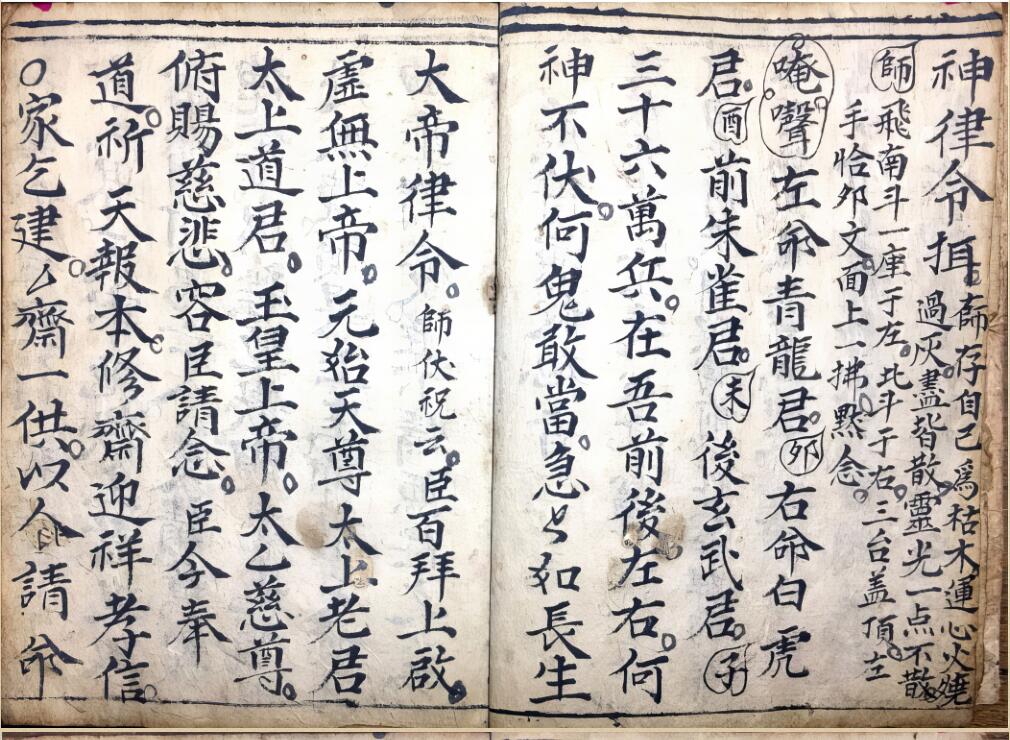 神律令揖。師存自己爲枯木運心火燒
過灰盡皆散靈光一点不散。
師飛南斗一座于左。北斗于右。三台盖頂。左
手恰夘文。面上一拂。黙念。
唵𠹌左命青龍君。夘右命白虎
君。酉前朱雀君。未後玄武君。子
三十六萬兵。在吾前後左右。何
神不伏。何鬼敢當。急〻如長生
大帝律令。師伏祝云。臣百拜上啟。
虛無上帝。元始天尊太上老君
太上道君。玉皇上帝。太乙慈尊。
俯賜慈悲。容臣請念。臣今奉
道。祈天報本。修齋迎祥孝信。
〇家乞建。厶齋一供。以今請命